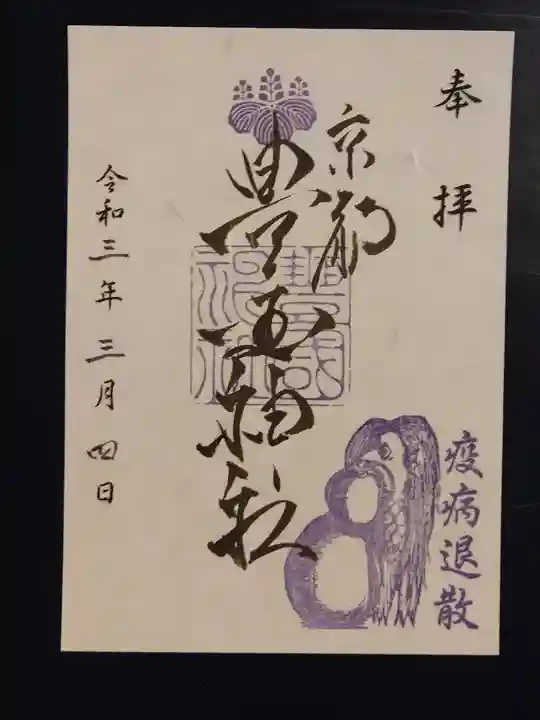 奉拝
京都
豊国神社
豐國神社
疫病退散
令和三年三月四日